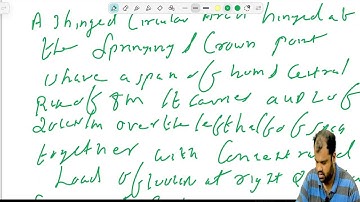 A 3 hinged Circular Arch hinged at
the Springing & Crown point
have a span of 40m & Central
Rise of 8m It carries a UDL of
20kN/m over the left half of span
together with Concentrated
Load of 100kN at right